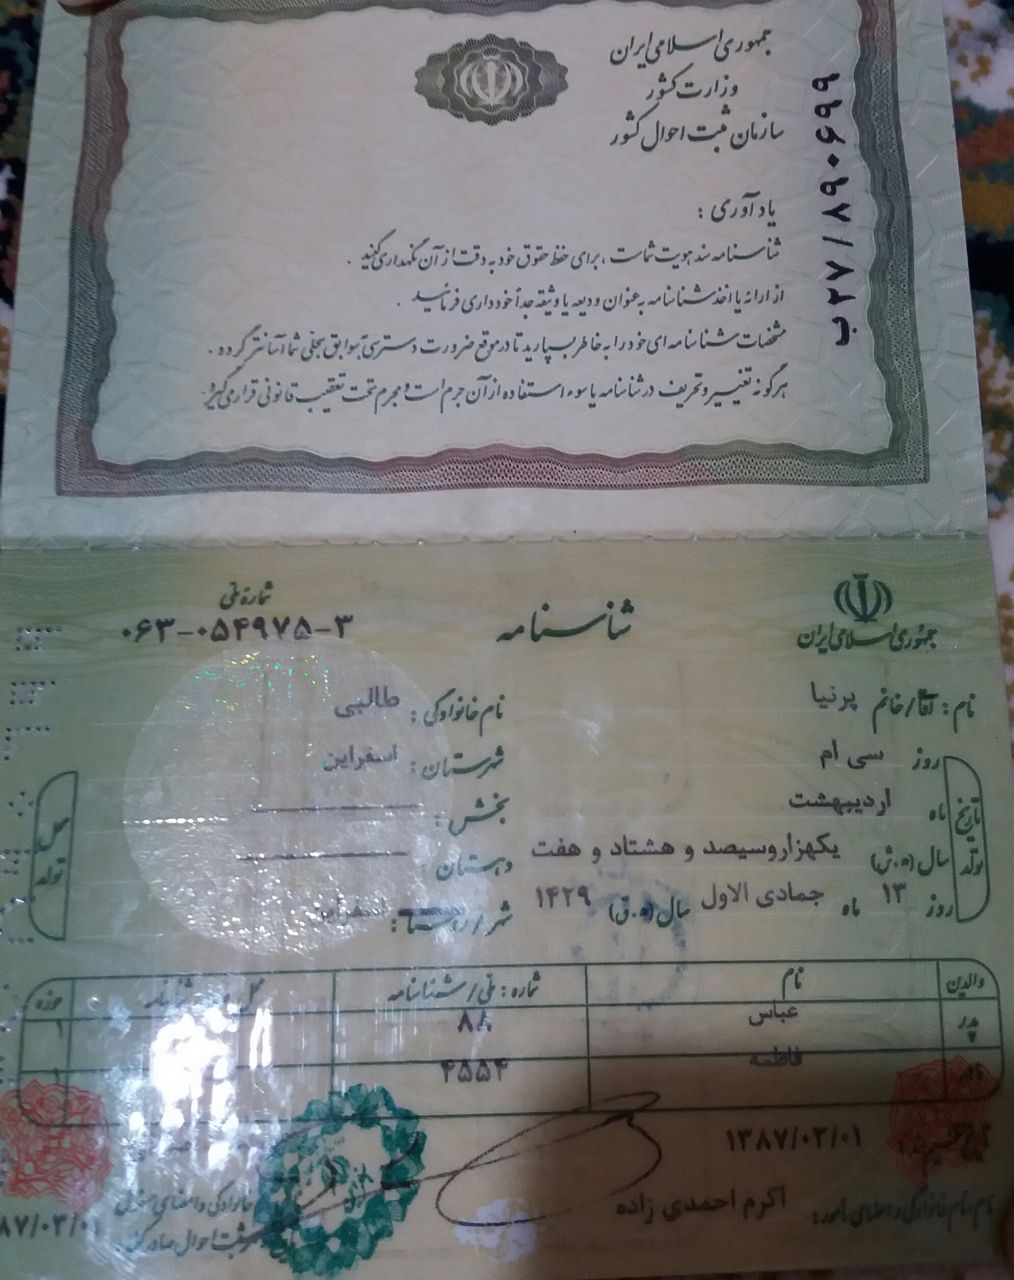 جمهوری اسلامی ایران
وزارت کشور
سازمان ثبت احوال کشور
ب ۲۷/۸۹۰۶۹۹
یادآوری :
شناسنامه سند هویت شماست ، برای حفظ حقوق خود به دقت از آن نگهداری کنید .
از ارائه یا اخذ شناسنامه به عنوان ودیعه یا وثیقه جداً خودداری فرمائید .
مشخصات شناسنامه ای خود را به خاطر بسپارید تا در موقع ضرورت دسترسی به سوابق سجلی شما آسانتر گردد .
هرگونه تغییر و تحریف در شناسنامه یا سوء استفاده از آن جرم است و مجرم تحت تعقیب قانونی قرار می گیرد .
جمهوری اسلامی ایران
شناسنامه
شماره ملی
۰۶۳-۰۵۴۹۷۵-۳
نام : آقا/خانم پرنیا نام خانوادگی : طالبی
تاریخ تولد
روز سی ام
ماه اردیبهشت
سال (ه.ش) یکهزاروسیصد و هشتاد و هفت
روز ۱۳ ماه جمادی الاول سال (ه.ق) ۱۴۲۹
محل تولد
شهرستان : اسفراین
بخش :
دهستان :
شهر/روستا : اسفراین
والدین نام شماره : ملی/شناسنامه محل شناسنامه حوزه
پدر عباس ۸۸ ۱
مادر فاطمه ۴۵۵۴ ۱
۱۳۸۷/۰۳/۰۱
نام و نام خانوادگی و امضای مامور : اکرم احمدی زاده
خانوادگی و امضای
ثبت احوال صادر کننده :
۸۷/۰۳/۰۱